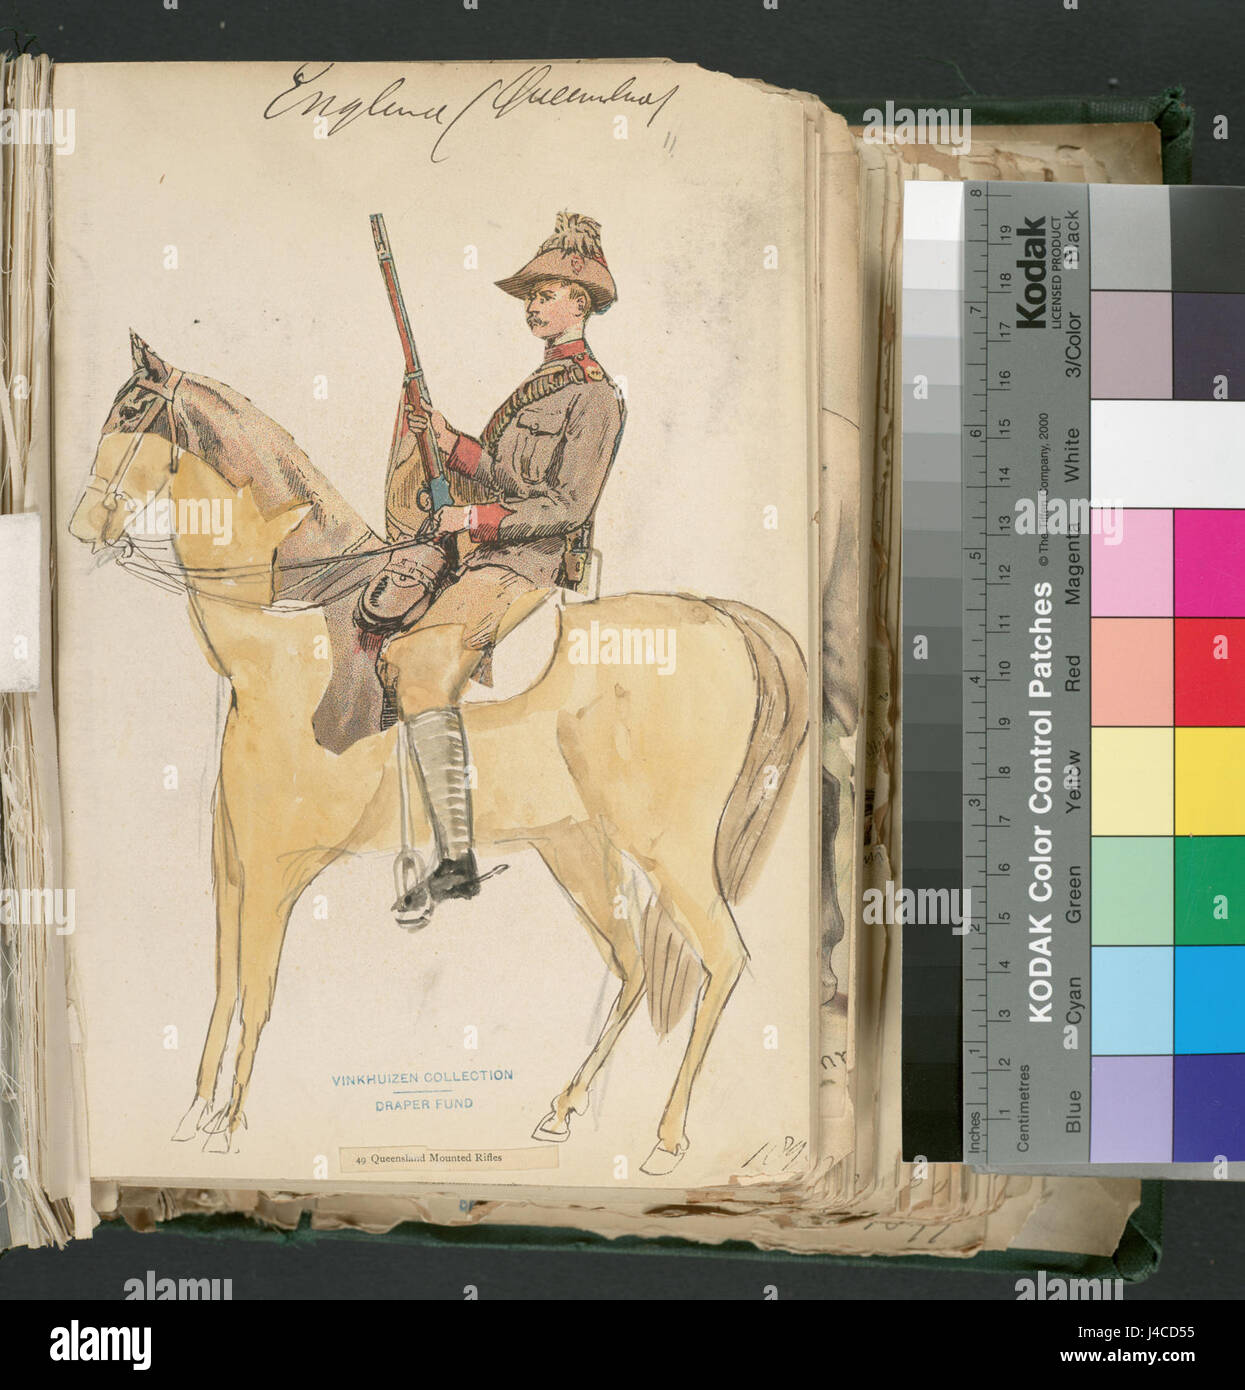 England (Queensland)
VINKHUIZEN COLLECTION
DRAPER FUND
49 Queensland Mounted Rifles
Kodak
LICENSED PRODUCT
KODAK Color Control Patches
© The Tiffen Company, 2000
Blue
Cyan
Green
Yellow
Red
Magenta
White
3/Color
Black
Inches
1
2
3
4
5
6
7
8
Centimetres
1
2
3
4
5
6
7
8
9
10
11
12
13
14
15
16
17
18
19
a
alamy
alamy stock photo
Image ID: J4CD55
www.alamy.com